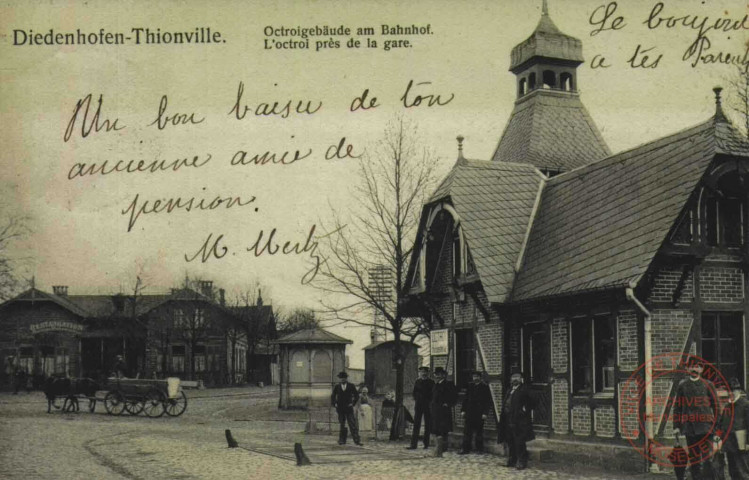 Diedenhofen-Thionville.
Octroigebäude am Bahnhof.
L'octroi près de la gare.
Le bonjour
a tes Parents
Un bon baiser de ton
ancienne amie de
pension.
M. Mertz
ARCHIVES